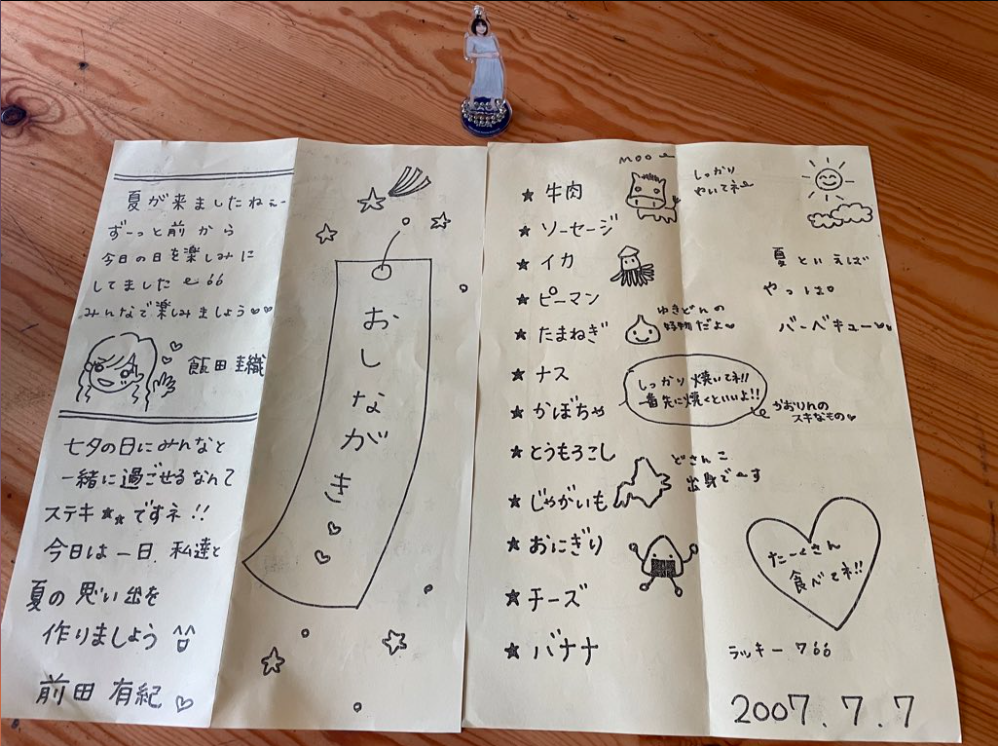 夏が来ましたねぇ~
ずーっと前から
今日の日を楽しみに
してました~66
みんなで楽しみましょう♡♡
飯田圭織
七夕の日にみんなと
一緒に過ごせるなんて
ステキ★★ですネ!!
今日は一日、私達と
夏の思い出を
作りましょう
前田 有紀 ♡
おしながき♡♡
moo~
★ 牛肉
しっかり
やいてネ~
★ ソーセージ
★ イカ
★ ピーマン
★ たまねぎ
ゆきどんの
好物だよ♡
★ ナス
★ かぼちゃ
しっかり焼いてネ!!
一番先に焼くといいよ!!
かおりんの
スキなもの♡
★ とうもろこし
★ じゃがいも
どさんこ
出身で~す
★ おにぎり
★ チーズ
★ バナナ
夏といえば
やっぱ。
バーベキュー♡♡
たーくさん
食べてネ!!
ラッキー766
2007.7.7